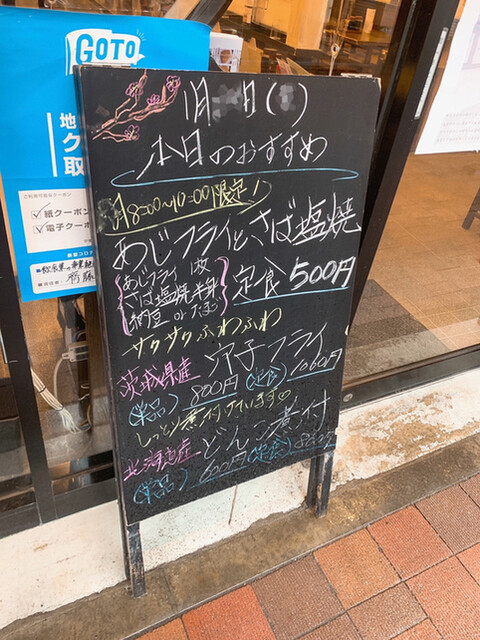 GOTO
地
ク
取
ご利用可能なクーポン
紙クーポン
電子クーポン
1月 日( )
本日のおすすめ
AM8:00~10:00限定!
あじフライとさば塩焼
あじフライ 1枚
さば塩焼半身
納豆 or たまご
定食 500円
サクサクふわふわ
茨城県産 穴子フライ
(単品) 800円 (定食) 1000円
しっとり煮付けています♡
北海道産 どんこ煮付
(単品) 600円 (定食) 800円